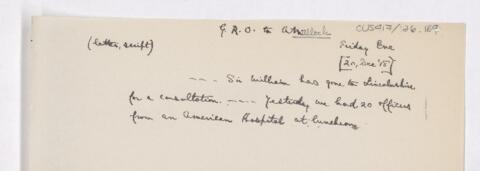 G.R.O. to A. Malloch
CUS417/126.189
(letter, script)
Friday Eve
[20, Dec '18]
--- Sir William has gone to Lincolnshire
for a consultation. ---- Yesterday we had 20 officers
from an American Hospital at luncheon